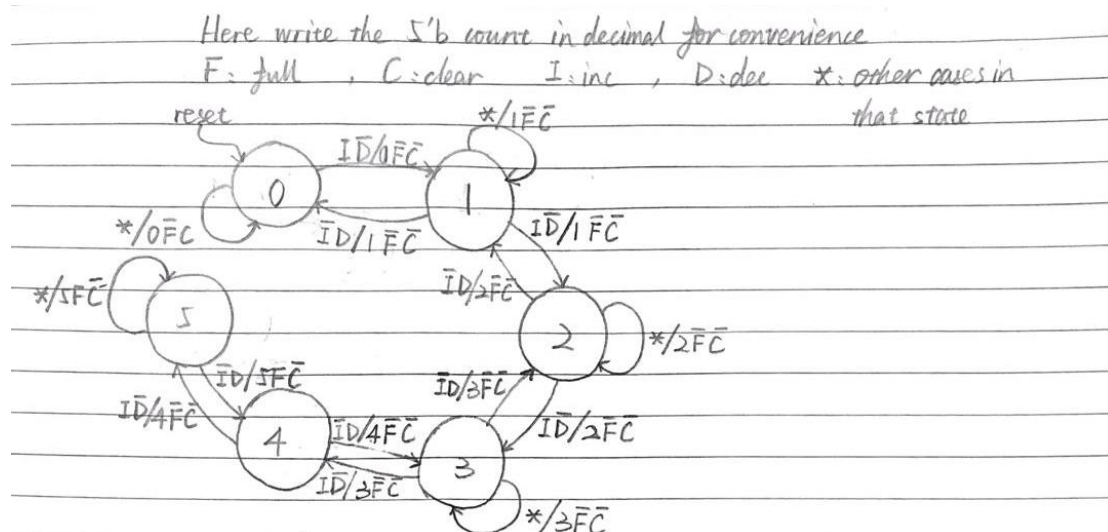 Here write the 5'b count in decimal for convenience
F: full , C: clear I: inc , D: dec *: other cases in
that state
reset
*/1F̅C̅
ID̅/0F̅C̅
0
1
*/0F̅C
I̅D/1F̅C̅
ID̅/1F̅C̅
*/5FC̅
I̅D/2F̅C̅
5
2
*/2F̅C̅
I̅D/5FC̅
I̅D/3F̅C̅
ID̅/4F̅C̅
ID̅/2F̅C̅
4
I̅D/4F̅C̅
3
ID̅/3F̅C̅
*/3F̅C̅